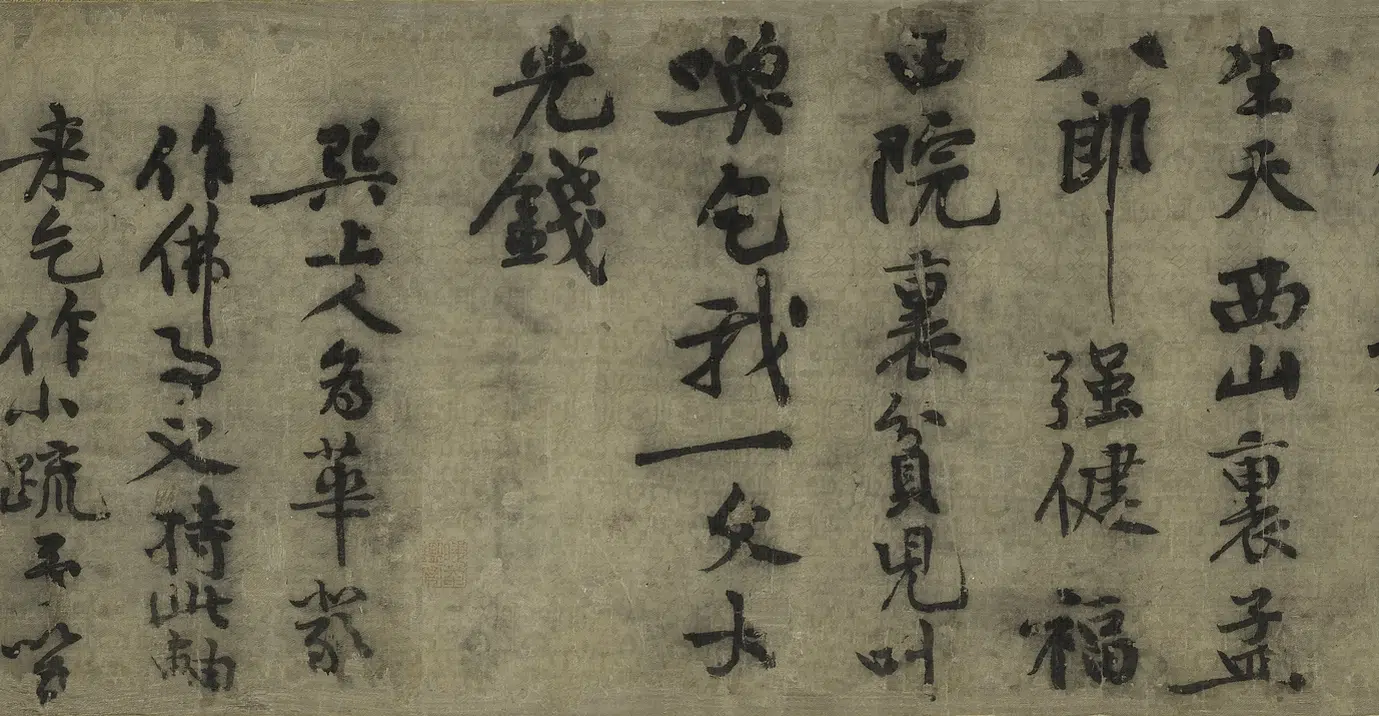 生天西山裏孟
八郎强健福
田院裏貧兒叫
喚乞我一文大
光錢
巽上人為華嚴
作佛事又持此軸
来乞作小疏